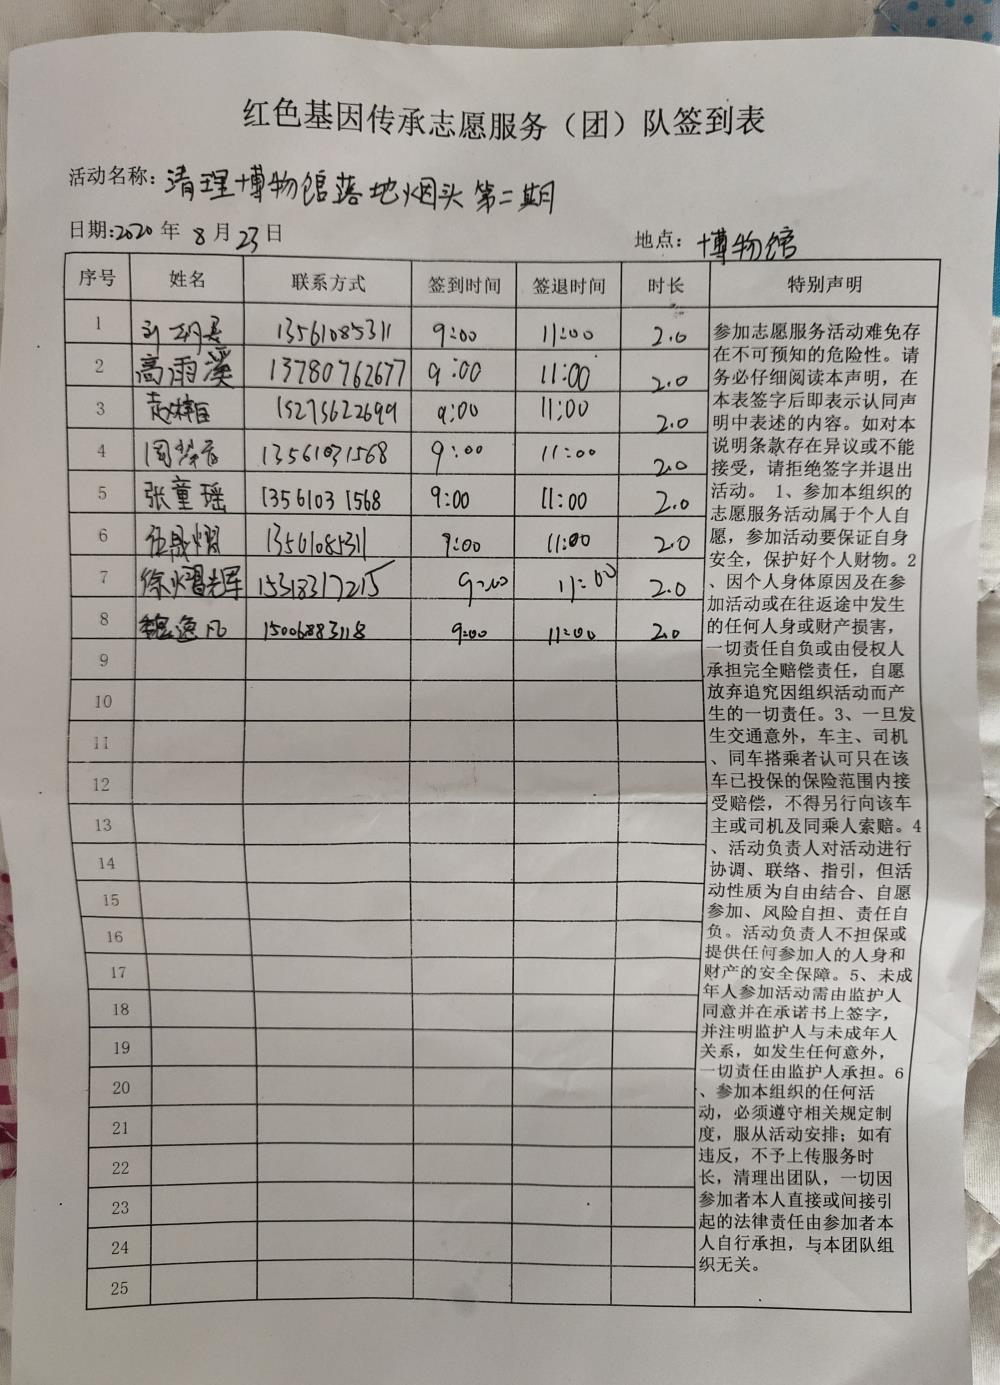 红色基因传承志愿服务（团）队签到表
活动名称：清理博物馆落地烟头第二期
日期:2020年8月23日 地点：博物馆
序号 姓名 联系方式 签到时间 签退时间 时长 特别声明
1 13561085311 9:00 11:00 2.0
2 高雨溪 13780762677 9:00 11:00 2.0
3 15275622699 9:00 11:00 2.0
4 13561031568 9:00 11:00 2.0
5 张童瑶 13561031568 9:00 11:00 2.0
6 伍晟熠 13561085311 9:00 11:00 2.0
7 徐熠 15318317215 9:00 11:00 2.0
8 魏逸凡 15006883118 9:00 11:00 2.0
9
10
11
12
13
14
15
16
17
18
19
20
21
22
23
24
25
参加志愿服务活动难免存
在不可预知的危险性。请
务必仔细阅读本声明，在
本表签字后即表示认同声
明中表述的内容。如对本
说明条款存在异议或不能
接受，请拒绝签字并退出
活动。 1、参加本组织的
志愿服务活动属于个人自
愿，参加活动要保证自身
安全，保护好个人财物。2
、因个人身体原因及在参
加活动或在往返途中发生
的任何人身或财产损害，
一切责任自负或由侵权人
承担完全赔偿责任，自愿
放弃追究因组织活动而产
生的一切责任。3、一旦发
生交通意外，车主、司机
、同车搭乘者认可只在该
车已投保的保险范围内接
受赔偿，不得另行向该车
主或司机及同乘人索赔。4
、活动负责人对活动进行
协调、联络、指引，但活
动性质为自由结合、自愿
参加、风险自担、责任自
负。活动负责人不担保或
提供任何参加人的人身和
财产的安全保障。5、未成
年人参加活动需由监护人
同意并在承诺书上签字，
并注明监护人与未成年人
关系，如发生任何意外，
一切责任由监护人承担。6
、参加本组织的任何活
动，必须遵守相关规定制
度，服从活动安排；如有
违反，不予上传服务时
长，清理出团队，一切因
参加者本人直接或间接引
起的法律责任由参加者本
人自行承担，与本团队组
织无关。